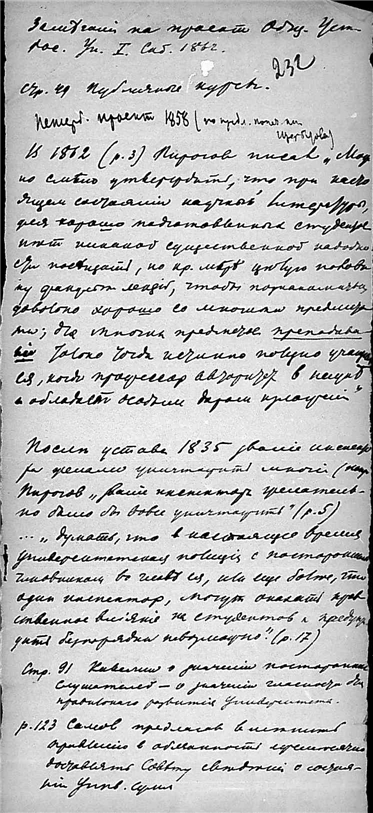 Замѣчанія на проектъ Общ. Уст.
Рос. Ун. I. Спб. 1862.
232
стр. 49 Публичные курсы.
Петерб. проектъ 1858 (по предл. попеч.
Щербатова)
Въ 1862 (р. 3) Пироговъ писалъ „Мож
но смѣло утверждать, что при насто
ящемъ состояніи научной литературы,
для хорошо подготовленныхъ студентовъ
нѣтъ никакой существенной надобно
сти посѣщать, по кр. мѣрѣ цѣлую полови
ну факульт. лекцій, чтобы познакомиться
довольно хорошо со многими предмета
ми; для многихъ предметовъ преподава
ніе только тогда истинно полезно учащим
ся, когда профессоръ авторитетъ въ наукѣ
и обладаетъ особымъ даромъ изложенія“
Послѣ устава 1835 званіе инспекто
ра желали уничтожить многіе (напр.
Пироговъ „Званіе инспектора желатель-
но было бы вовсе уничтожить“ (р. 5)
... „думать, что въ настоящее время
университетская полиція съ постороннимъ
чиновникомъ во главѣ ея, или еще болѣе, что
одинъ инспекторъ, могутъ оказать нрав
ственное вліяніе на студентовъ и предупре
дить безпорядки невозможно“ (р. 17)
Стр. 91 Кавелинъ о значеніи постороннихъ
слушателей — о значеніи гласности для
правильнаго развитія Университета.
р. 123 предлагаетъ
въ обязанность ежемѣсячно
доставлять Совѣту свѣдѣнія о состоя-
ніи Унив. суммъ